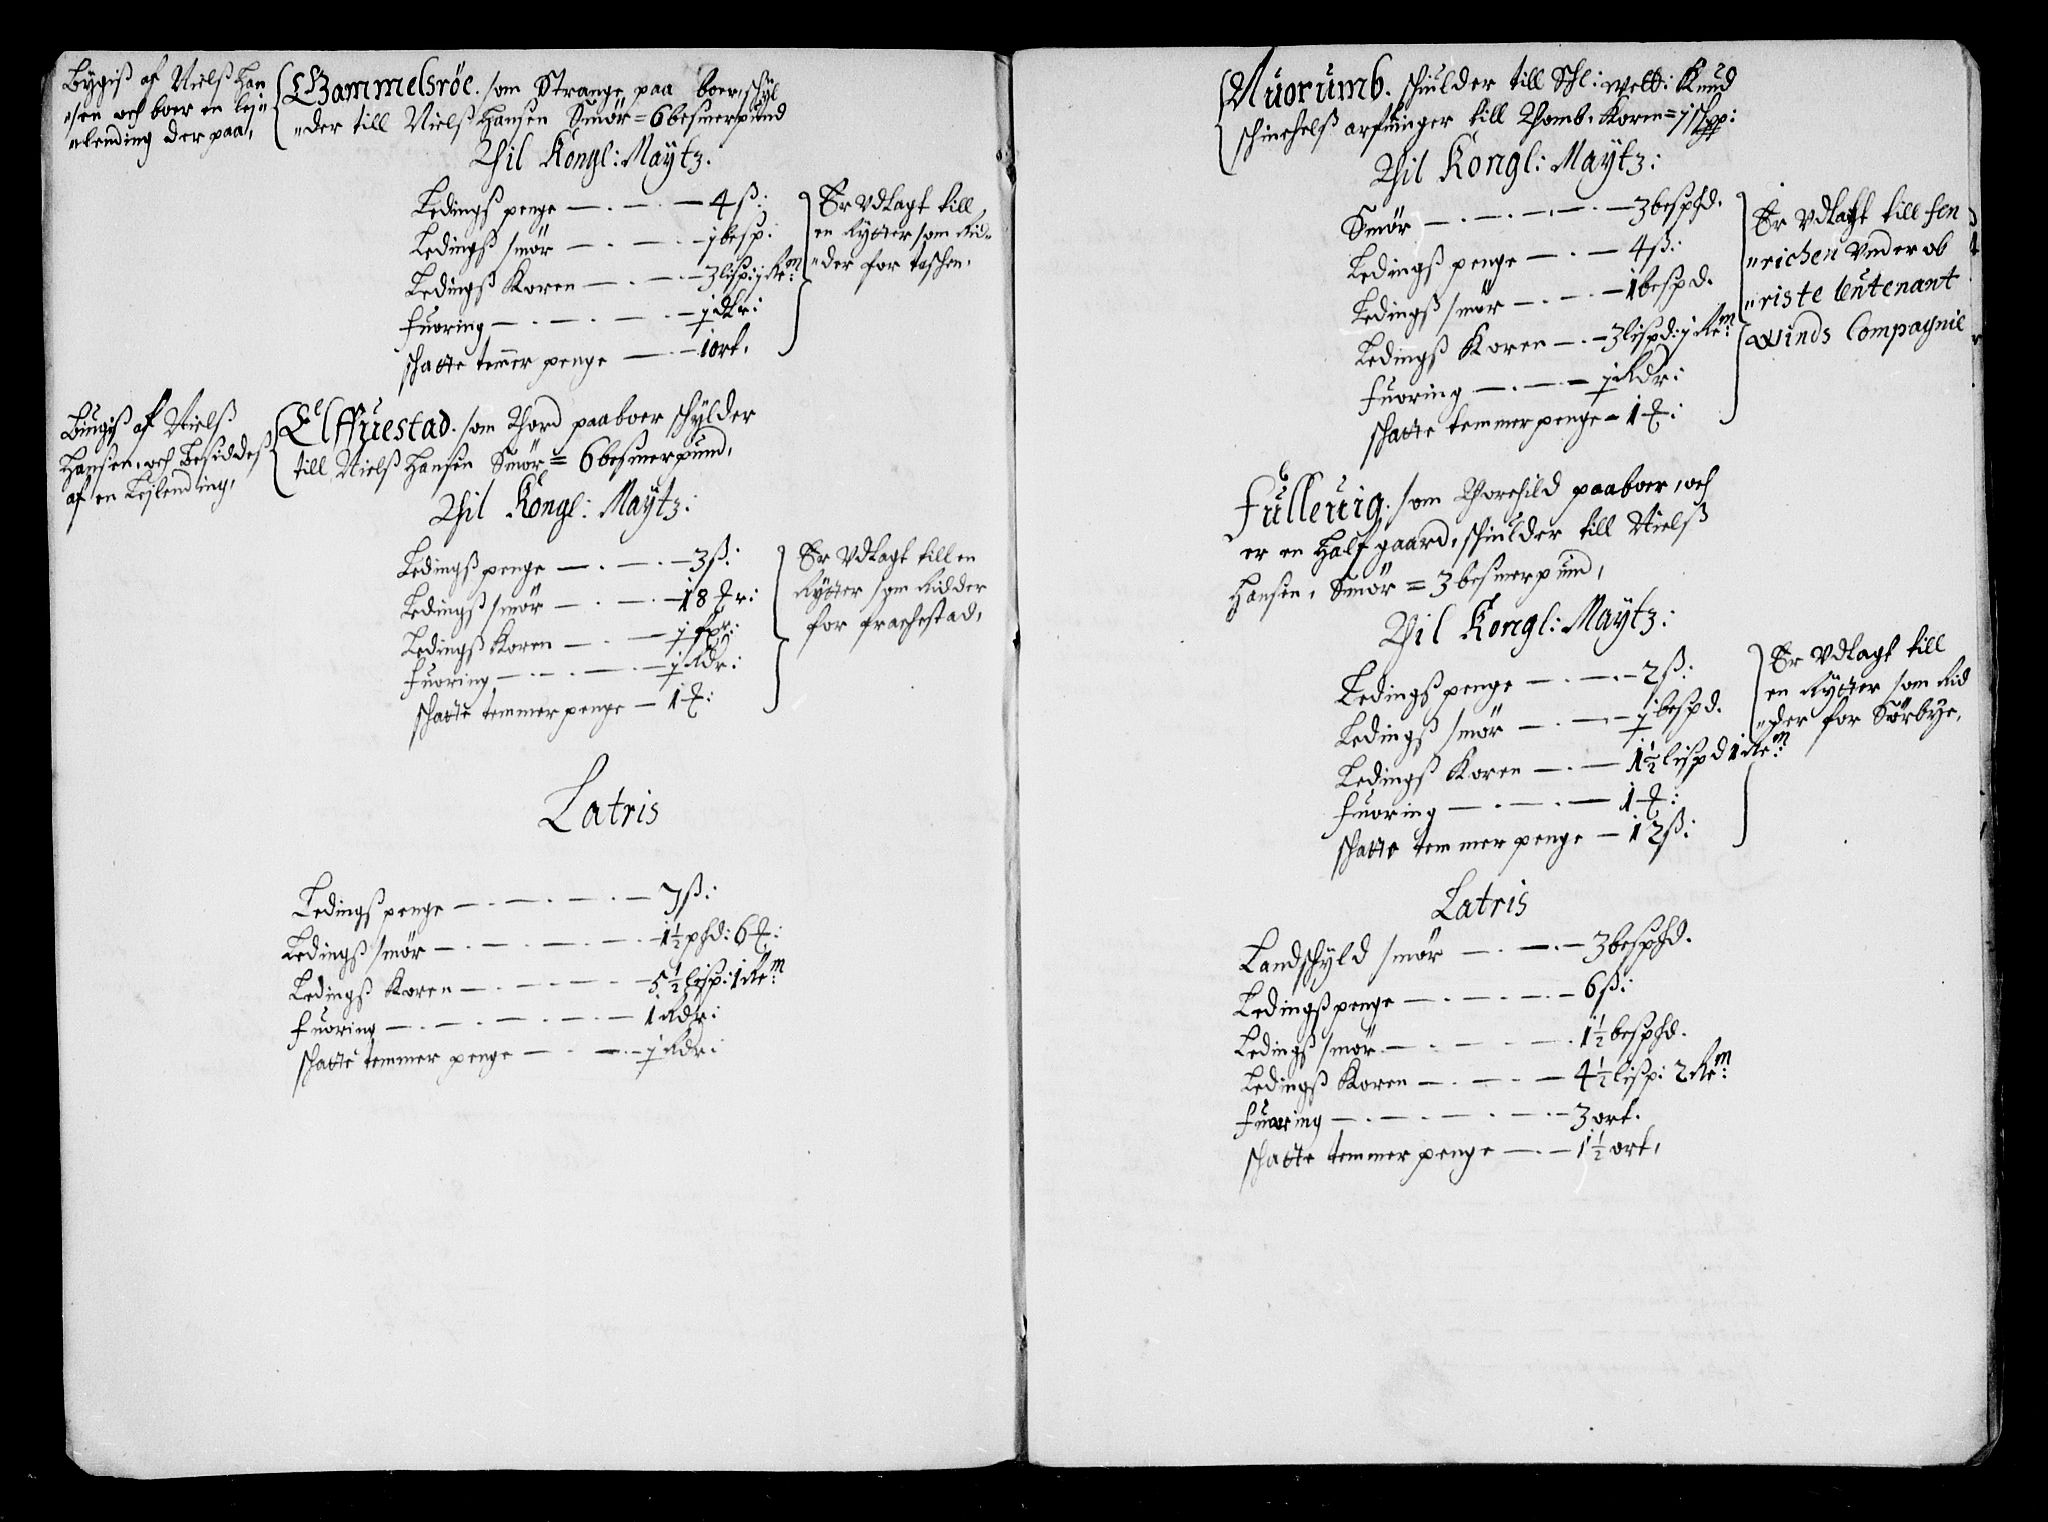 Bygis af Nielß Han
"sen och boer en lej"
"lending der paa,
Gammelsröe. som Strange paa boer, schyl
"der till Nielß Hansen Smör = 6 besmerpund
Thil Kongl: Maytz:
Ledingß penge — . — . — 4 ß:
Ledingß smör — . — . — j besp:
Ledingß Koren — . — 3 lisp: j Rem:
fuoring — . — . — . — j Rdr:
schatte temmer penge — . — 1 ort.
Er Vdlagt till
en Rytter som Rid"
"der for taschen.
Bÿugis af Nielß
Hansen, och besiddes
af en Lejlending,
Elffuestad. som Thord paaboer schÿlder
till Nielß Hansen Smör = 6 besmerpund,
Thil Kongl: Maÿtz:
Ledingß penge — . — . — 3 ß:
Ledingß smör — . — . — 18
Ledingß Koren — . — j
fuoring — . — . — . — j Rdr:
schatte temmer penge — 1
Er Vdlagt till en
Rytter som Ridder
for frachestad,
Latris
Ledingß penge — . — . — . — 7 ß:
Ledingß smör — . — . — . — 1½ pfd: 6
Ledingß Koren — . — . — 5½ lisp: 1 Rem:
fuoring — . — . — . — . — 1 Rdr:
schatte temmer penge — . — . — j Rdr:
Nuorumb. schiulder till Shl: welb: Knud
schinchelß arfuinger till Thomb. Korn = j schpp:
Thil Kongl: Maytz:
Smör — . — . — . — . — 3 bespfd.
Ledingß penge — . — 4 ß:
Ledingß smör — . — . — 1 bespd.
Ledingß Koren — . — 3 lispd: j Rem:
fuoring — . — . — j Rdr:
schatte temmer penge — 1
Er Vdlagt till fen
"richen Vnder ob
"riste leutenant
Winds Compagnie
Fulleuig. som Thorchild paaboer, och
er en Half gaard, schiulder till Nielß
Hansen, Smör = 3 besmerpuud,
Thil Kongl: Maytz:
Ledingß penge — . — . — 2 ß:
Ledingß smör — . — . — j bespd.
Ledingß Koren — . — 1½ lispd 1 Rem:
fuoring — . — . — 1
schatte temmer penge — 12 ß:
Er Vdlagt till
en Rytter som Rid
"der for Sörbye,
Latris
Landschyld smör — . — . — 3 bespfd.
Ledingß penge — . — . — . — 6 ß:
Ledingß smör — . — . — . 1½ bespfd.
Ledingß Koren — . — . — 4½ lisp: 2 Rem:
fuoring — . — . — . — . — 3 ort.
schatte temmer penge — . — 1½ ort,